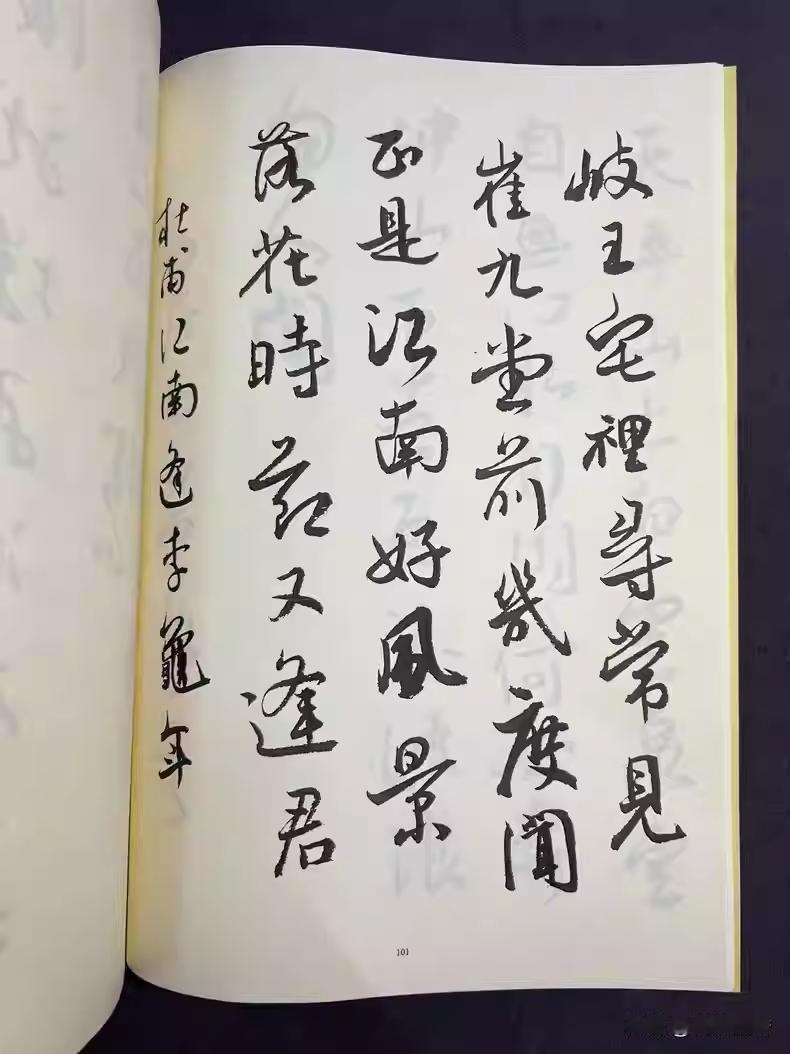 岐王宅裡尋常見
崔九堂前幾度聞
正是江南好風景
落花時節又逢君
杜甫江南逢李龜年
101